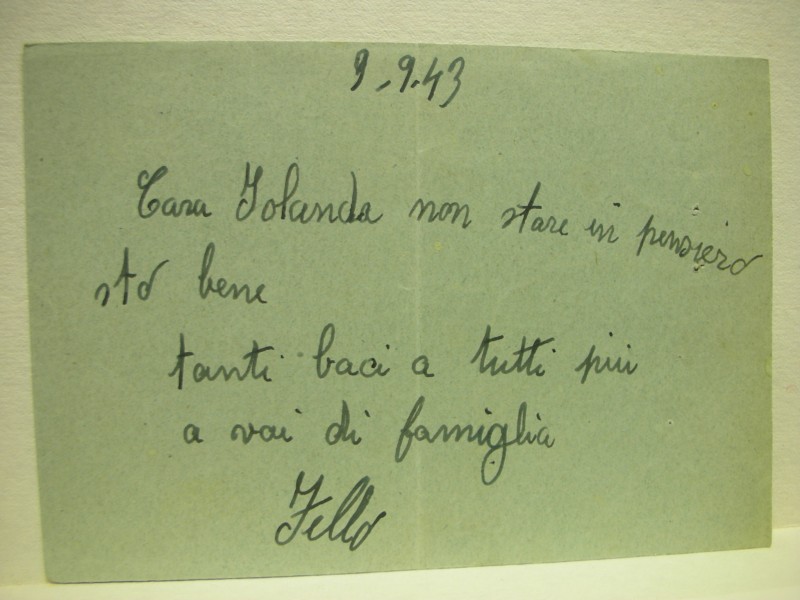 9.9.43
Cara Iolanda non stare in pensiero
sto bene
tanti baci a tutti più
a voi di famiglia